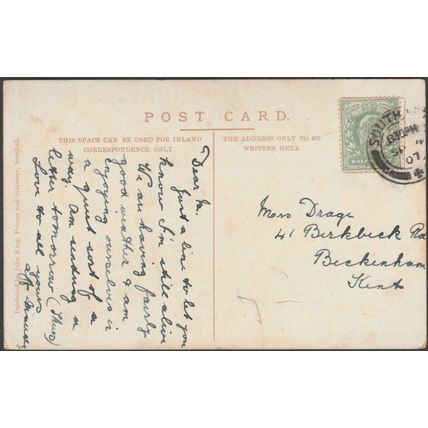 POST CARD.
THIS SPACE CAN BE USED FOR INLAND
CORRESPONDENCE ONLY.
THE ADDRESS ONLY TO BE
WRITTEN HERE.
Dear M.
Just a line to let you
know I'm still alive
We are having fairly
good weather & am
enjoying ourselves in
a quiet sort of a
way. Am sending a
letter tomorrow (Thurs)
Love to all yours
Miss Drage
41 Birkbeck Rd
Beckenham
Kent
Published by John King, Printer and Stationer, Southall.
HALF
SOUTH
8.30PM
07